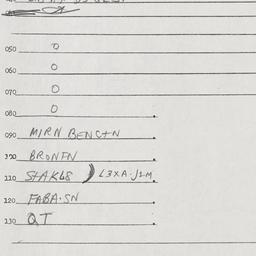 050 0
060 0
070 0
080 0
090 MIRN BENCTN
100 BRONFN
110 STAKLS ) L3XA·J1M.
120 FABA·SN
130 QT